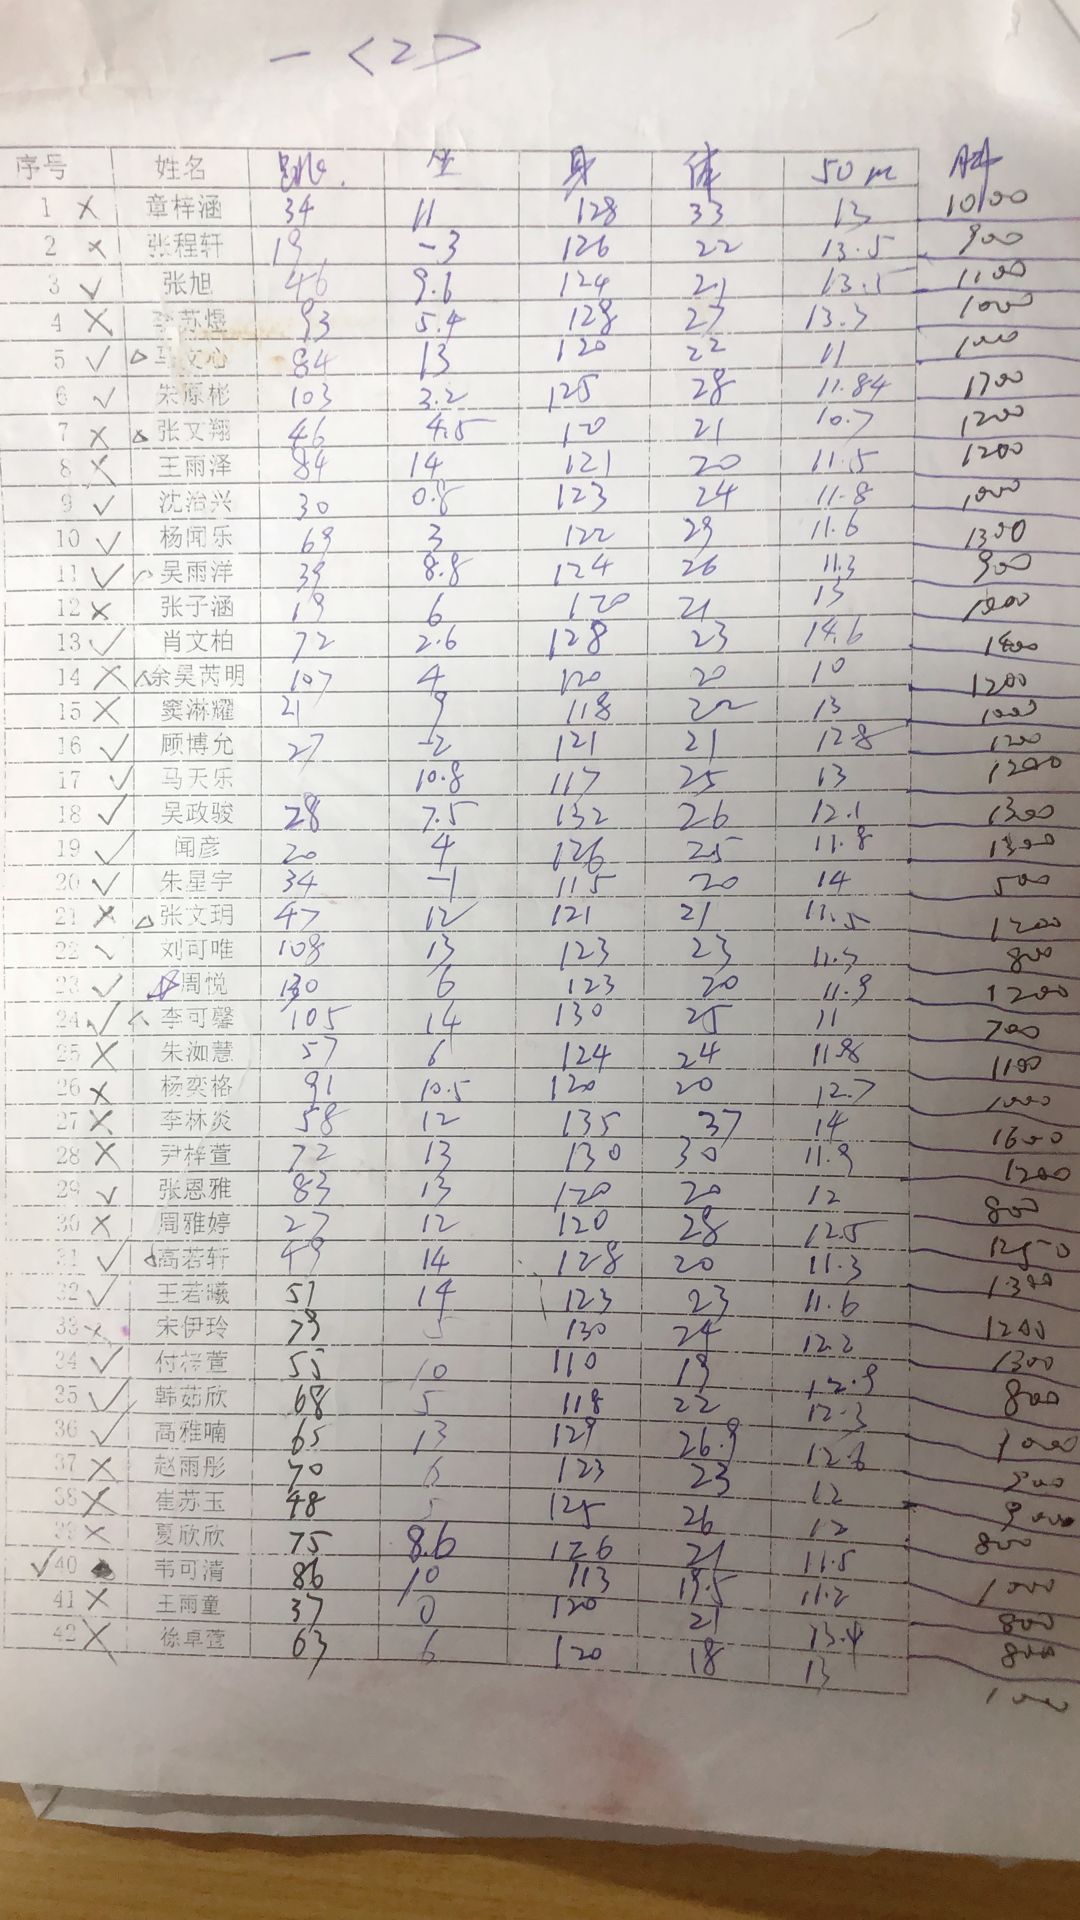 一<2>
序号 姓名 跳 坐 身 体 50m 肺
1 × 章梓涵 34 11 128 33 13 1000
2 × 张程轩 19 -3 126 22 13.5 900
3 ✓ 张旭 46 9.6 124 21 13.1 1100
4 × 李苏煜 93 5.4 128 27 13.3 1000
5 ✓ △ 马文心 84 13 120 22 11 1000
6 ✓ 朱原彬 103 3.2 125 28 11.84 1700
7 × △ 张文翔 46 4.5 120 21 10.7 1200
8 × 王雨泽 84 14 121 20 11.5 1200
9 ✓ 沈治兴 30 0.8 123 24 11.8 1000
10 ✓ 杨闻乐 69 3 122 29 11.6 1300
11 ✓ 吴雨洋 39 8.8 124 26 11.3 900
12 × 张子涵 19 6 120 21 13 1000
13 ✓ 肖文柏 72 2.6 128 23 14.6 1400
14 × △ 余吴芮明 107 4 120 20 10 1200
15 × 窦淋耀 21 9 118 22 13 1000
16 ✓ 顾博允 27 -2 121 21 12.8 1200
17 ✓ 马天乐 10.8 117 25 13 1200
18 ✓ 吴政骏 28 7.5 132 26 12.1 1300
19 ✓ 闻彦 20 4 126 25 11.8 1300
20 ✓ 朱星宇 34 -1 115 20 14 500
21 × △ 张文玥 47 12 121 21 11.5 1200
22 ✓ 刘可唯 108 13 123 23 11.3 800
23 ✓ 周悦 130 6 123 20 11.9 1200
24 ✓ 李可馨 105 14 130 25 11 700
25 × 朱洳慧 57 6 124 24 11.8 1100
26 × 杨奕格 91 10.5 120 20 12.7 1000
27 × 李林炎 58 12 135 37 14 1600
28 × 尹梓萱 72 13 130 30 11.9 1200
29 ✓ 张恩雅 83 13 120 20 12 800
30 × 周雅婷 27 12 120 28 12.5 1250
31 ✓ △ 高若轩 49 14 128 20 11.3 1300
32 ✓ 王若曦 57 14 123 23 11.6 1200
33 × 宋伊玲 79 5 130 24 12.2 1300
34 ✓ 付梓萱 55 10 110 19 12.9 800
35 ✓ 韩茹欣 68 5 118 22 12.3 1000
36 ✓ 高雅喃 65 13 129 26.9 12.6
37 × 赵雨彤 70 6 123 23 12
38 × 崔苏玉 48 5 125 26 12 800
39 × 夏欣欣 75 8.6 126 21 11.5 1000
✓ 40 韦可清 86 10 113 19.5 11.2 800
41 × 王雨童 37 0 120 21 13.4 800
42 × 徐卓萱 63 6 120 18 13